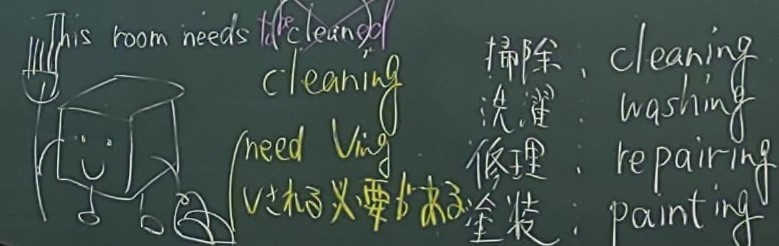 This room needs to be cleaned
cleaning
need Ving
Vされる必要がある
掃除: cleaning
洗濯: washing
修理: repairing
塗装: painting